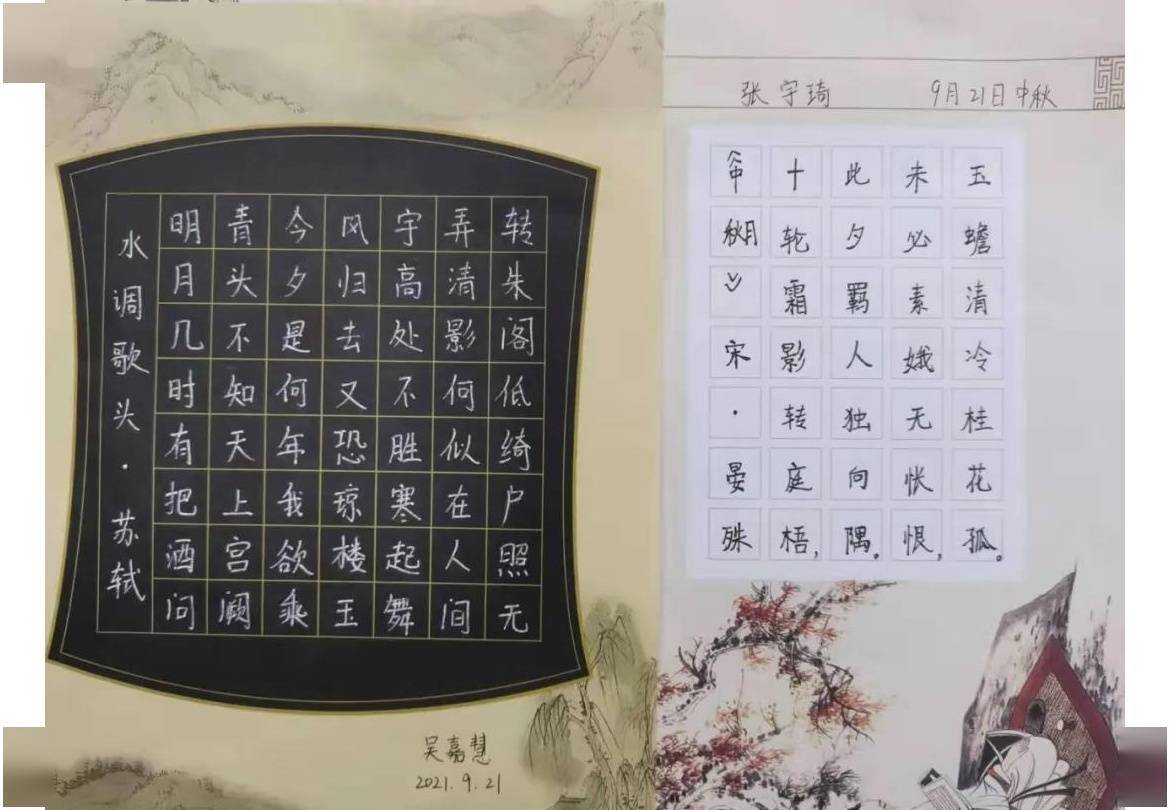 水调歌头·苏轼
明月几时有把酒问
青头不知天上宫阙
今夕是何年我欲乘
风归去又恐琼楼玉
宇高处不胜寒起舞
弄清影何似在人间
转朱阁低绮户照无
吴嘉慧
2021.9.21
张宇琦 9月21日中秋
《中秋月》宋·晏殊
十轮霜影转庭梧,
此夕羁人独向隅。
未必素娥无怅恨,
玉蟾清冷桂花孤。